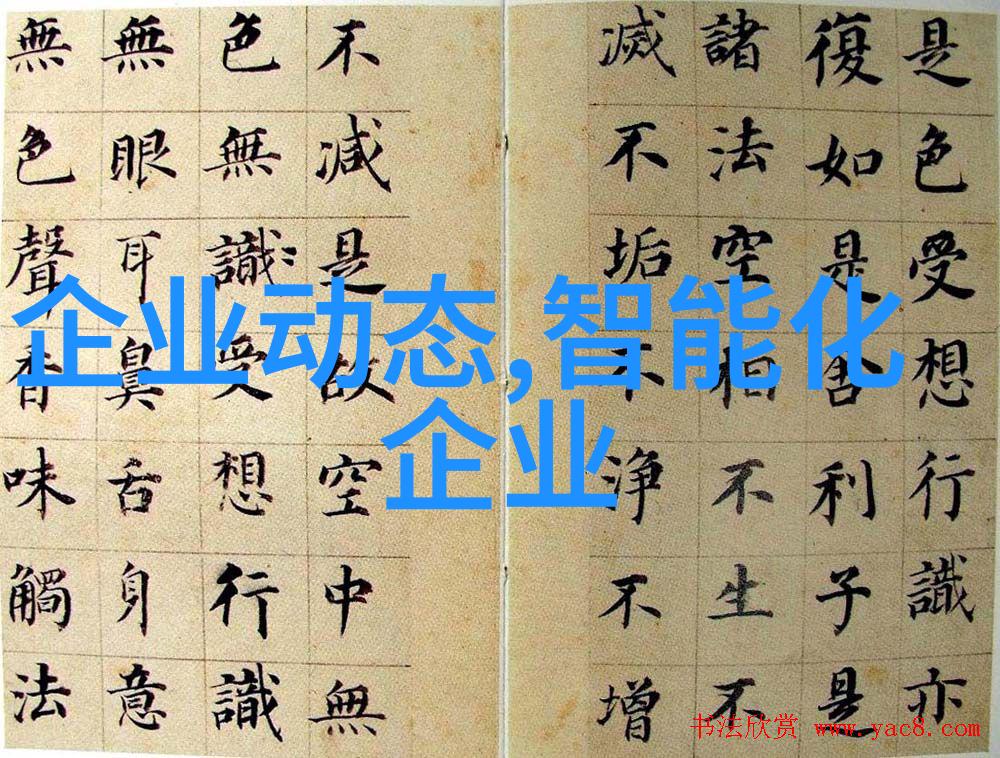 是色受想行識亦
復如是舍利子是
諸法空相不生不
滅不垢不淨不增
不減是故空中無
色無識受想行識
無眼耳鼻舌身意
無色聲香味觸法
企业动态,智能化
企业
书法欣赏 www.yac8.com